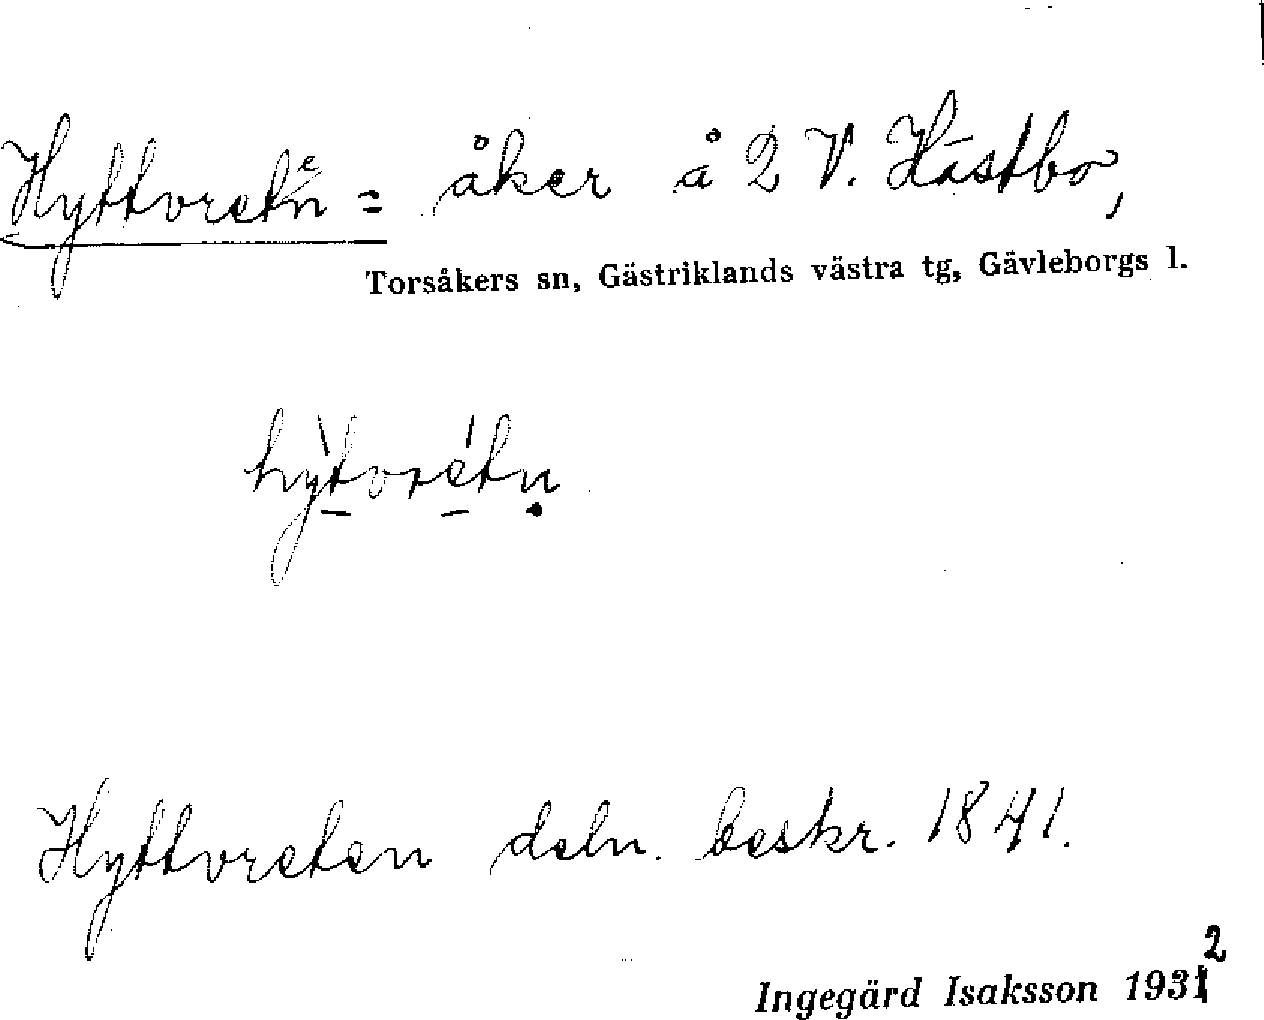 Hyttvreten = åker å 2 V. Hästbo,
Torsåkers sn, Gästriklands västra tg, Gävleborgs l.
hỳ̠tvré̠tṇ
Hyttvreten deln. beskr. 1841.
Ingegärd Isaksson 1932